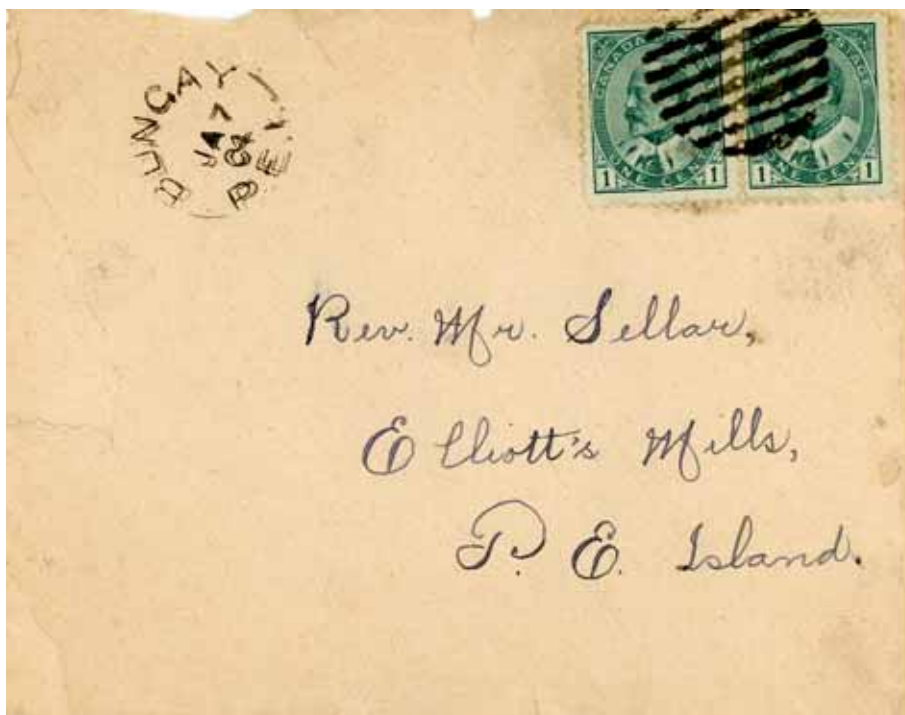 BUNGAY
JA 7
04
P.E.I
CANADA POSTAGE
1 ONE CENT 1
1 ONE CENT 1
Rev. Mr. Sellar,
Elliott's Mills,
P. E. Island.